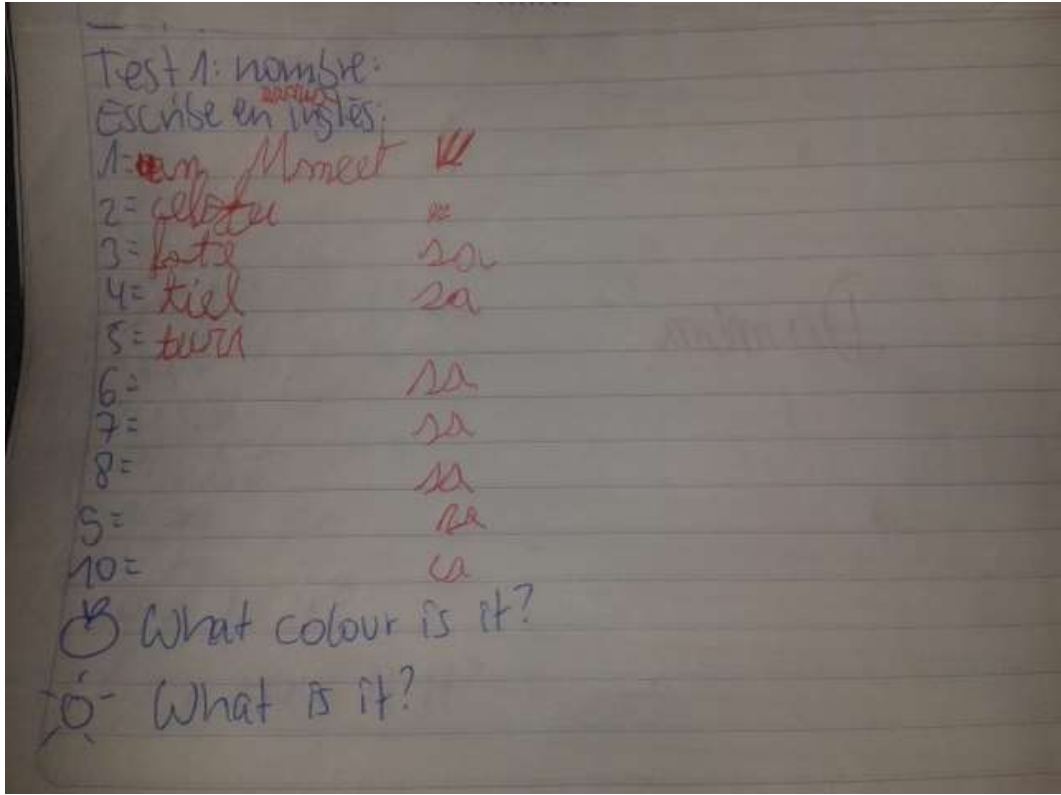 Test 1: nombre:
Escribe en inglés;
1= Mmeet
2=
3= fate sa
4= tiel sa
5= turn
6= sa
7= sa
8= sa
9= sa
10= ca
What colour is it?
What is it?